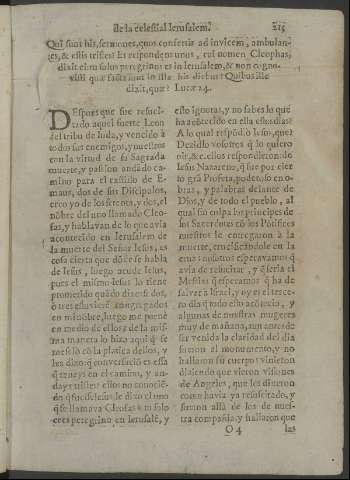 de la celestial Ierusalem. 215
Qui sunt hi sermones, quos confertis ad invicem, ambulan-
tes, & estis tristes? Et respondens unus, cui nomen Cleophas,
dixit ei: tu solus peregrinus es in Ierusalem, & non cogno-
visti quæ facta sunt in illa his diebus? Quibus ille
dixit, quæ? Lucæ 24.
DEspues que fue resuci-
tado aquel fuerte Leon
del tribu de Iuda, y vencido à
todos sus enemigos, y nuestros
con la virtud de su Sagrada
muerte, y passion andãdo ca-
mino para el castillo de E-
maus, dos de sus Dicipolos,
creo yo de los setenta, y dos, el
nõbre del uno llamado Cleo-
fas, y hablavan de lo que avia
acontecido en Ierusalem de
la muerte del Señor Iesus, es
cosa cierta que dõde se habla
de Iesus, luego acude Iesus,
pues el mismo Iesus lo tiene
prometido quãdo dixo: si dos,
ò tres estuvierẽ congregados
en mi nõbre, luego me porné
en medio de ellos: de la mis-
ma manera lo hizo aqui q̃ se
metió cõ la platica dellos, y
les dixo: q̃ conversaciõ es essa
q̃ traeys en el camino, y an-
days tristes? ellos no conociẽ-
do q̃ fuesse Iesus, le dixo el uno
q̃ se llamava Cleofas: tu solo
eres peregrino en Ierusalẽ, y
esto ignoras, y no sabes lo que
ha acõtecido en ella estos dias?
A lo qual respõdio Iesus, que?
Dezildo vosotros q̃ lo quiero
oir, &c. ellos respondieron: de
Iesus Nazareno, q̃ fue por cier-
to grã Profeta, poderoso en o-
bras, y palabras delante de
Dios, y de todo el pueblo, al
qual sin culpa los principes de
los Sacerdotes cõ los Põtifices
nuestros le entregaron à la
muerte, crucificandole en la
cruz: nosotros esperavamos q̃
avia de resucitar, y q̃ seria el
Messias q̃ esperamos q̃ ha de
salvar à Israel, y oy es el terce-
ro dia q̃ todo ello acõtecio, y
algunas de nuestras mugeres
muy de mañana, aun antes de
ser venida la claridad del dia
fueron al monumento, y no
hallaron su cuerpo: vinieron
diziendo que vieron visiones
de Angeles, que les dixeron
como havia ya resucitado, y
fueron allá de los de nues-
tra compañia, y hallaron que
O 4 las